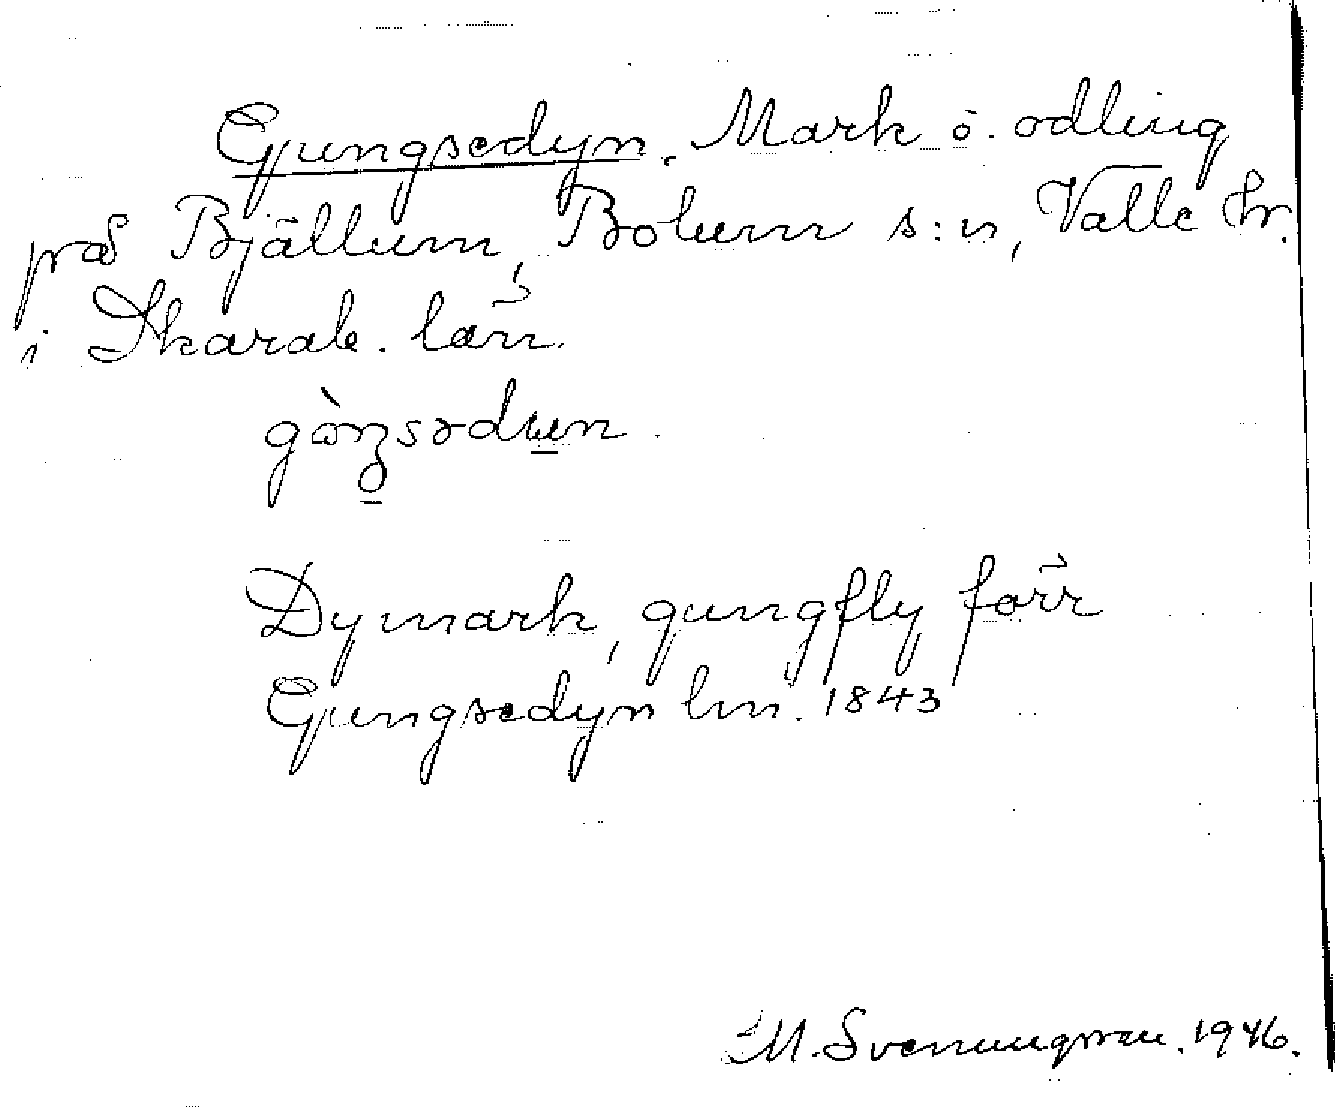 Gungsedyn. Mark o. odling
på Bjällum, Bolum s:n, Valle hr.
i Skarab. län.
gòŋsədʉn.
Dymark, gungfly förr
Gungsedyn lm. 1843
M. Svenungsson. 1946.